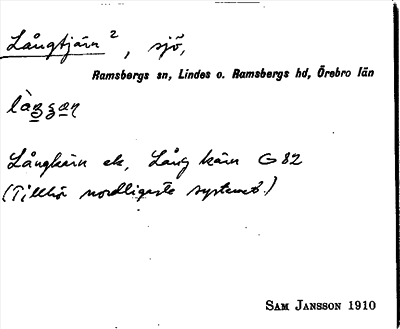 Långtjärn ², sjö,
Ramsbergs sn, Lindes o. Ramsbergs hd, Örebro län
Långkärn ek, Lång kärn G 82
(Tillhör nordligaste systemet.)
SAM JANSSON 1910